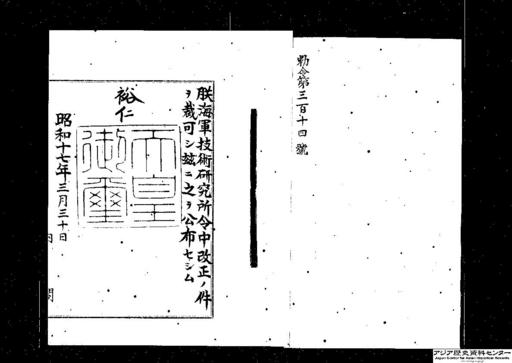 勅令第三百十四號
朕海軍技術研究所令中改正ノ件
ヲ裁可シ玆ニ之ヲ公布セシム
裕仁
天皇
御璽
昭和十七年三月三十日
アジア歴史資料センター
Japan Center for Asian Historical Records